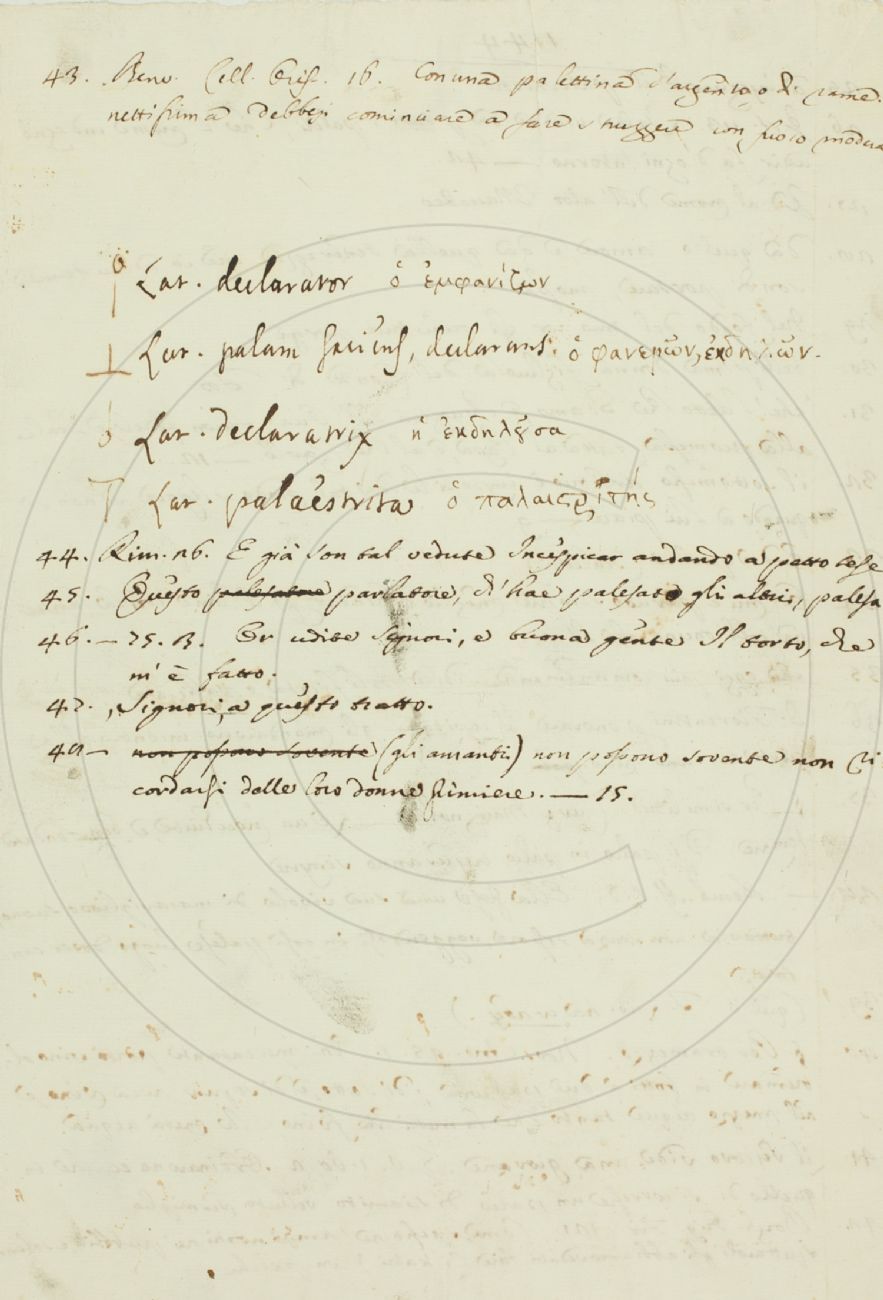 43. Benv. Cell. Oref. 16. Con una palettina d'argento o di rame
nettissima debbesi cominciare a fare struggere con fuoco modera
Lat. declarator ὁ ἐμφανίζων
Lat. palam faciens, declarans. ὁ φανερῶν, ἐκδηλῶν.
Lat. declaratrix ἡ ἐκδηλȣσα
Lat. palaestrita ὁ παλαιστρίτης
44. Rim. 26. E già son tal vedute Incespicar andando a petto tese
45. Questo palesatore parlatore, ch'hae palesato gli altri, palesa
46. — 25. 13. Or udite Signori, e buona gente Il torto, che
m'è fatto.
47. Signori, a questo tratto.
non possono sovente (gli amanti) non possono sovente non ri
cordarsi delle loro donne primiere. — 15.